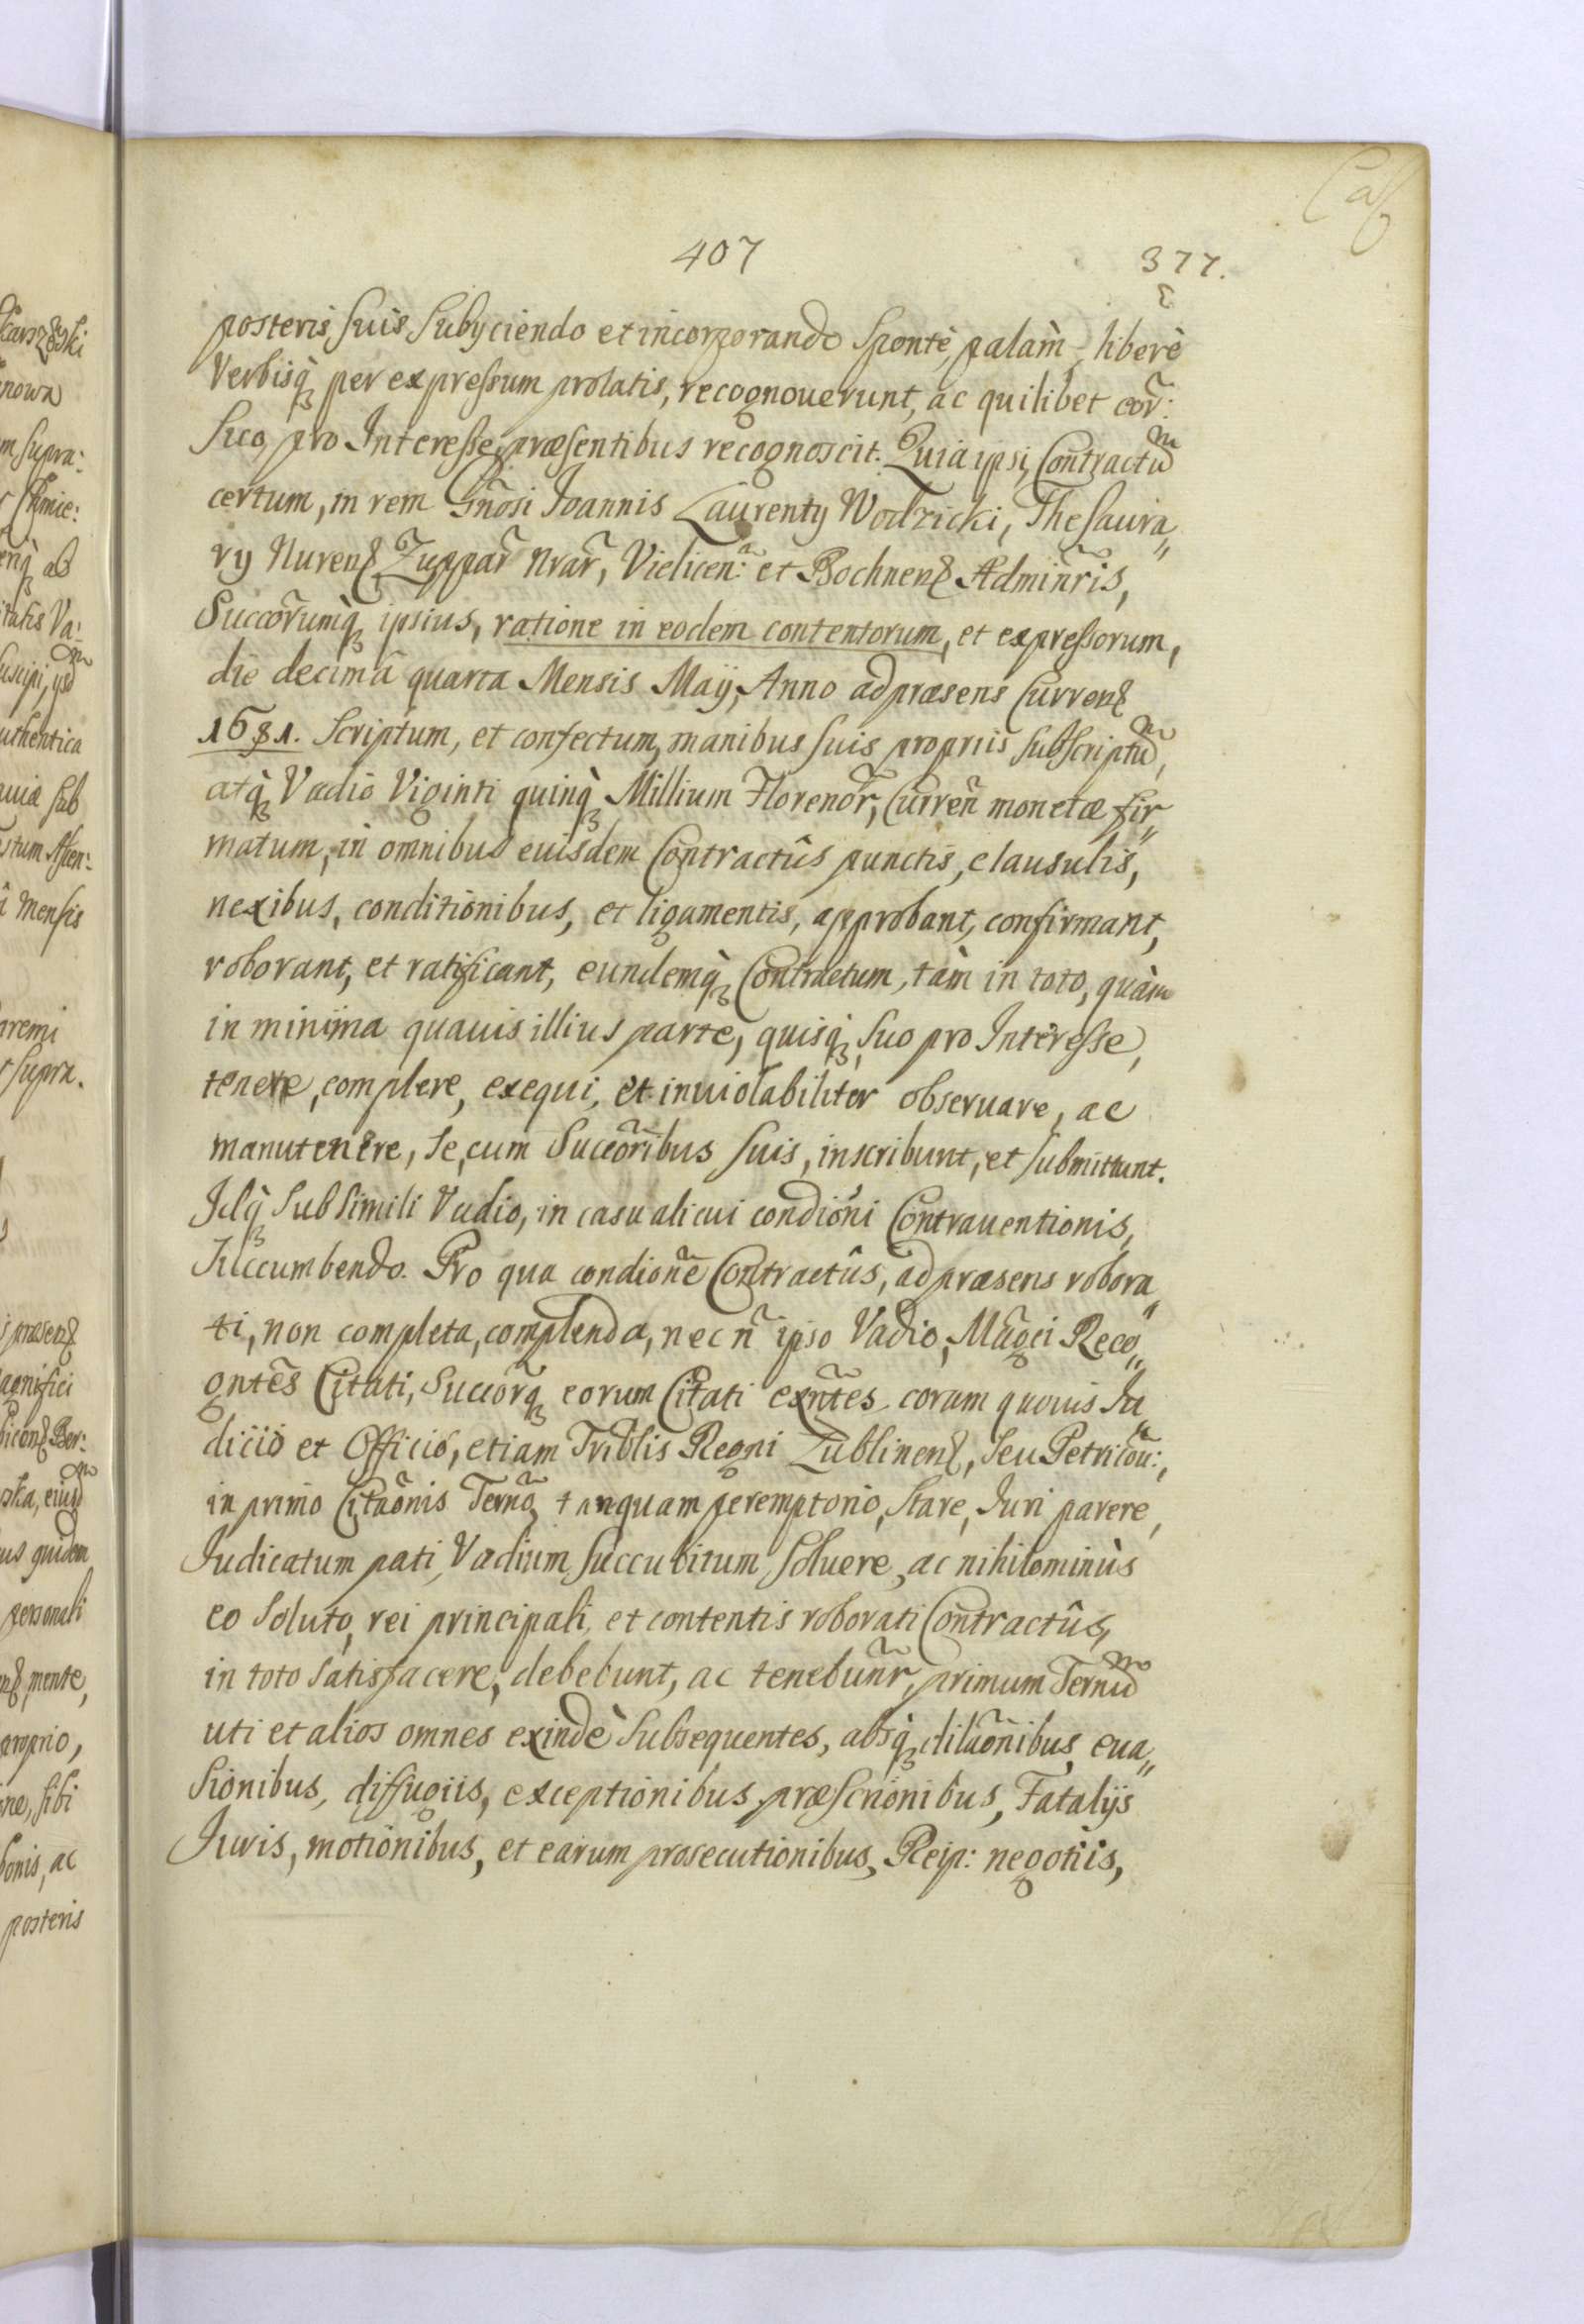 407
377.
posteris suis Subyciendo et incorporando Spontè, palàm, liberè
Verbisq̀ꝫ per expressum prolatis, recognouerunt, ac quilibet eor̃:
Suo, pro Interesse, præsentibus recognoscit. Quia ipsi, Contractũ
certum, in rem Gñosi Joannis Laurenty Wodzicki, Thesaura„
ry Nurenꝭ Zuppar̃ Nrar̃, Vielicen̄: et Bochnenꝭ Adminr̃is,
Succor̃umq̀ꝫ ipsius, ratione in eodem contentorum, et expressorum,
die decimâ quarta Mensis Maÿ, Anno ad præsens Currenꝭ
1681. Scriptum, et confectum, manibus suis proprijs subscriptũ,
atq̀ꝫ Vadio Viginti quinq̀ꝫ Millium Florenor̃, Curreñ monetæ fir„
matum, in omnibus euisdem Contractûs punctis, clausulis,
nexibus, conditionibus, et ligamentis, approbant, confirmant,
roborant, et ratificant, eundemq̀ꝫ Contractum, tàm in toto, quàm
in minima quauis illius parte, quisq̀ꝫ, suo pro Interesse,
tenere, complere, exequi, et inuiolabiliter obseruare, ac
manutenere, se, cum Succor̃ibus suis, inscribunt, et submittunt.
Idq̀ꝫ sub simili Vadio, in casu alicui condiõni Contrauentionis,
succumbendo. Pro qua condiõne Contractûs, ad præsens robora„
ti, non completa, complenda, nec ñ ipso Vadio, Mãgci Reco„
gntẽs Citati, Succor̃q̀ꝫ eorum Citati exñtes coram quouis Iu„
dicio et Officio, etiam Triblis Regni Lublinenꝭ, seu Petricoũ:,
in primo Citãonis Terno, tanquam peremptorio, stare, Iuri parere,
Iudicatum pati, Vadium succubitum, soluere, ac nihilominùs
eo soluto, rei principali, et contentis roborati Contractûs,
in toto satisfacere, debebunt, ac tenebunr̃, primum Ternũ
uti et alios omnes exindè subsequentes, absq̀ꝫ dilãonibus, eua„
sionibus, diffugiis, exceptionibus, præscriõnibus, Fatalijs
Iuris, motionibus, et earum prosecutionibus, Reip: negotiis,